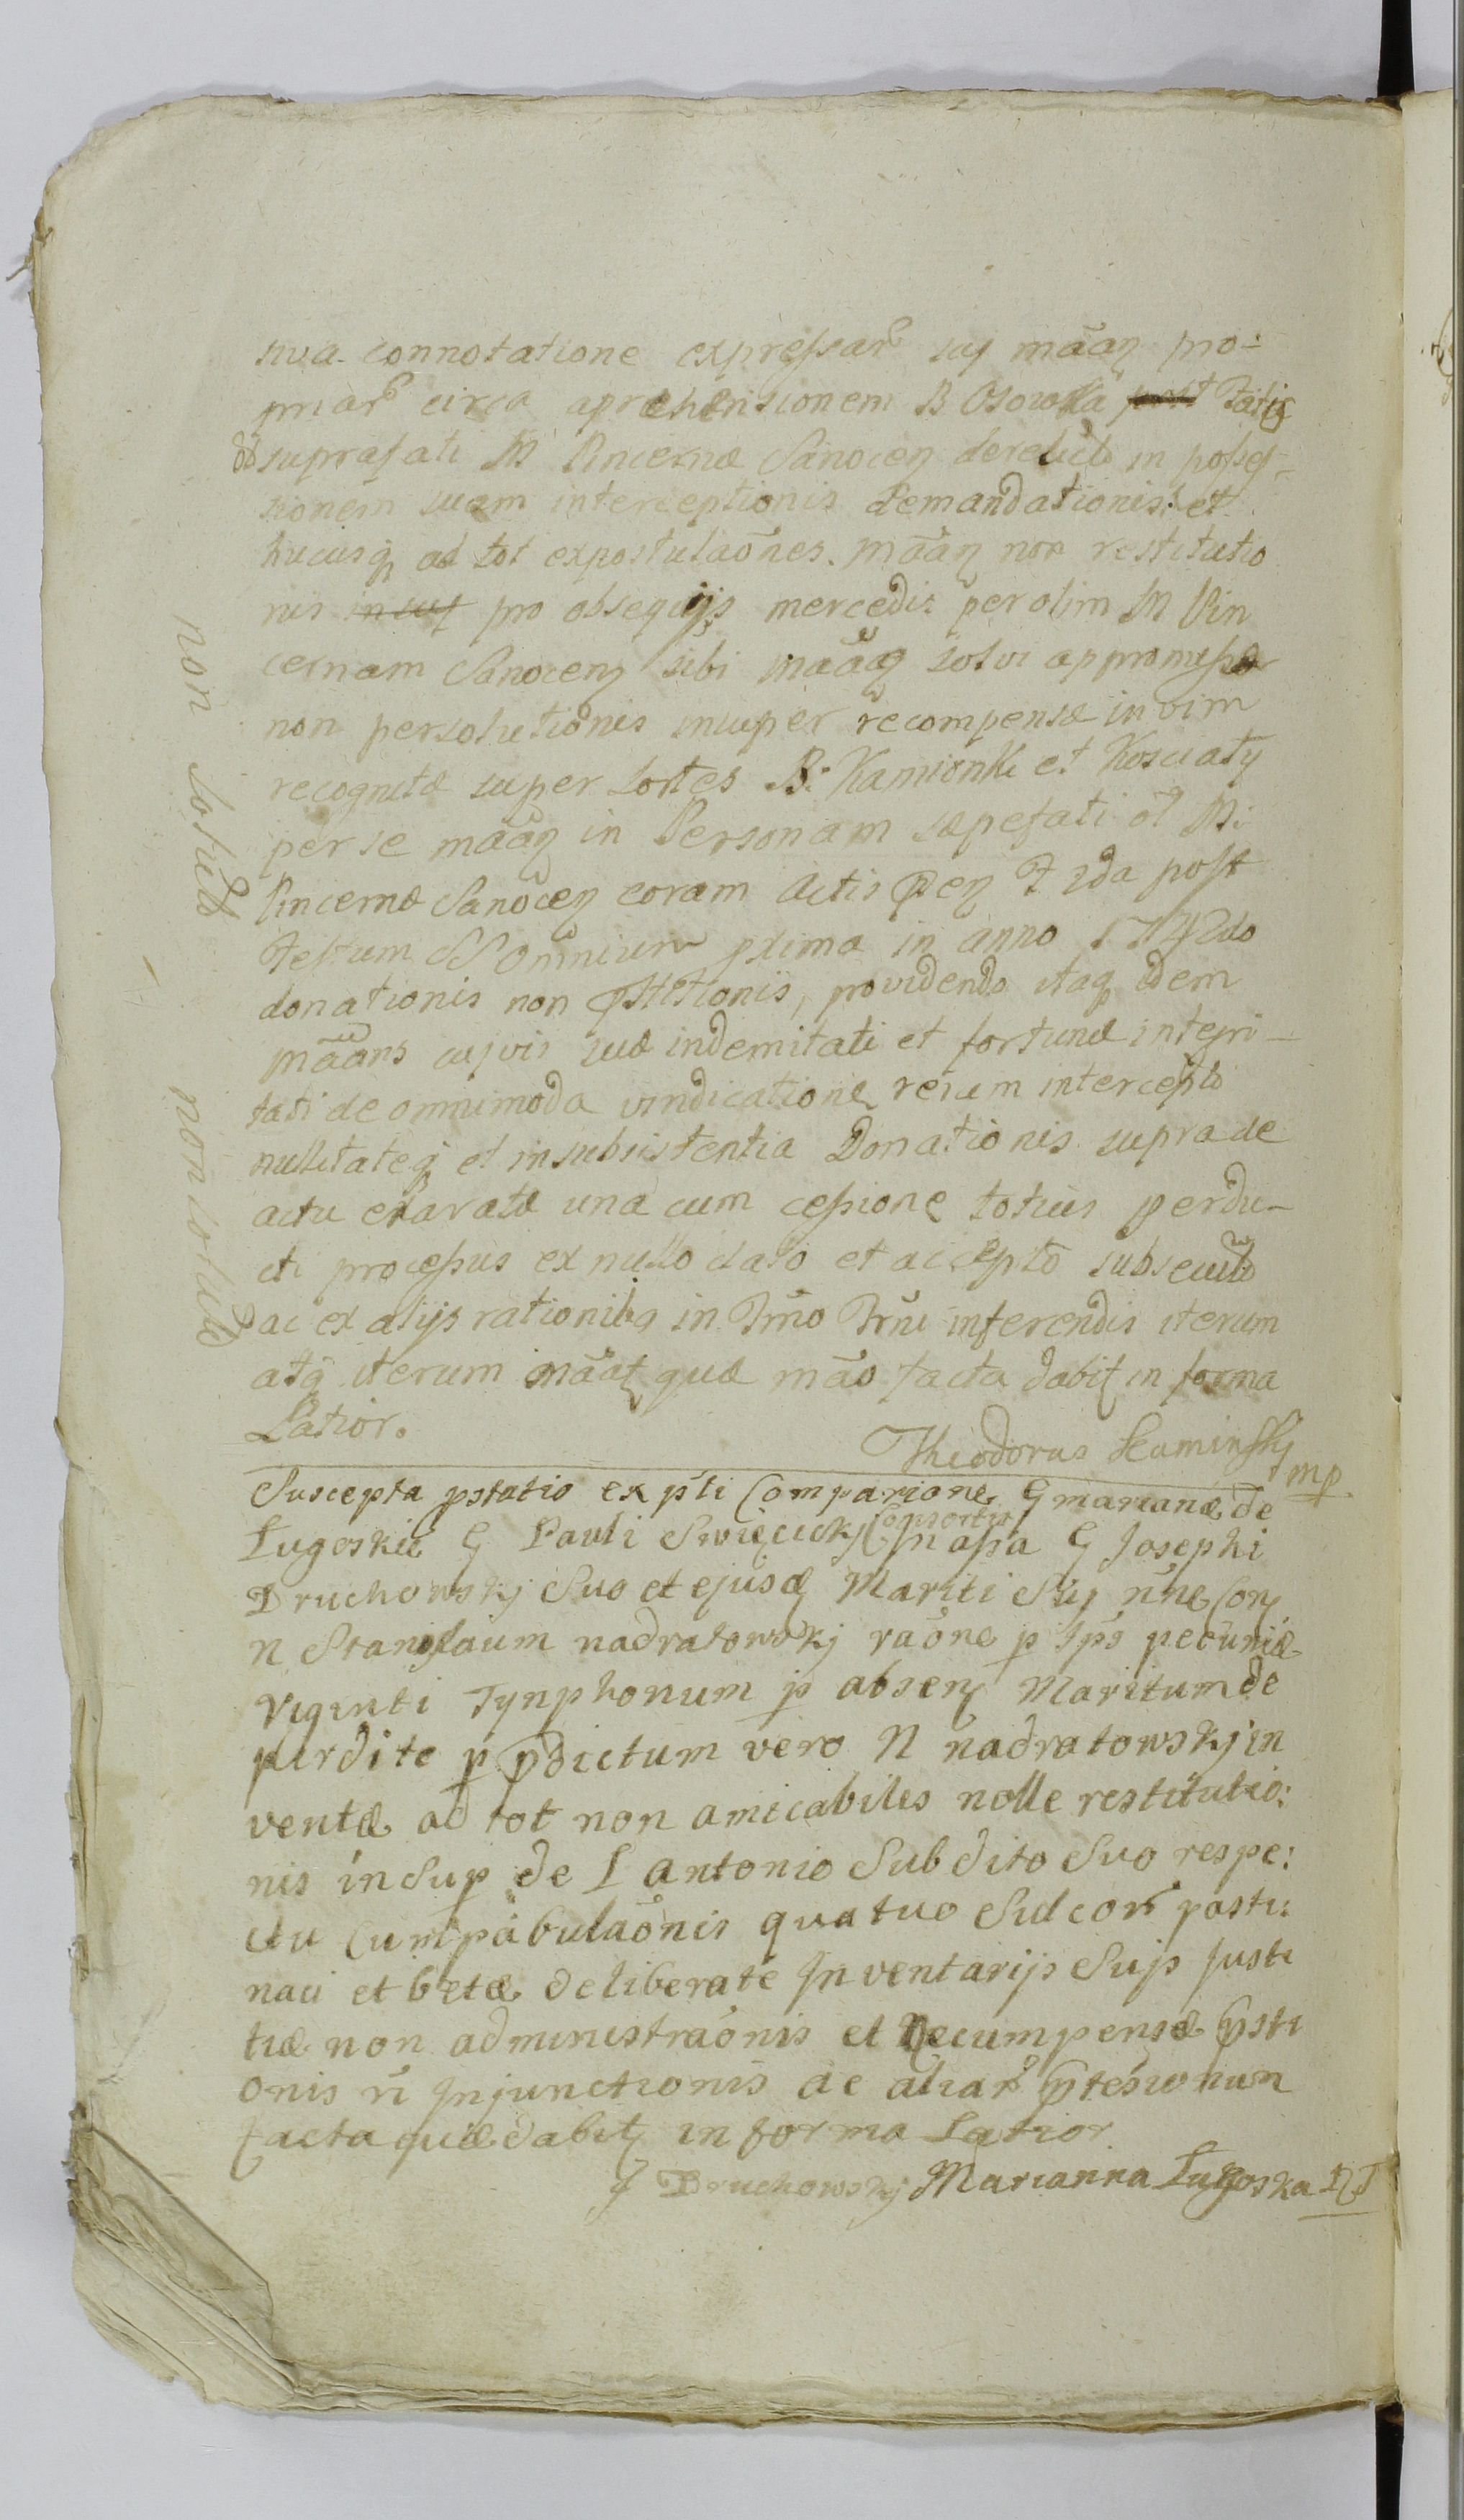 sua connotatione expressar suj mãan pro:
priar circa apraehensionem B Osowka post Fatis
suprafati M Pincernæ Sanocen derelict in posses-
sionem suam interceptionis demandationis: et
hucusq ad tot expostulaões mãan non restitutio
nis insup pro obsequijs mercedis per olim M Pin
cernam Sanocen sibi mãaq solvi appromissæ
non persolutionis insuper recompensæ in vim
recognitæ super sortes B: Kamionki et Kosciaty
per se mãan in Personam sæpefati ol M:
Pincernæ Sanocen coram Actis Pen F 2da post
Festum SS Omnium pxima in anno 1742do
donationis non pstitionis, providendo itaq idem
mãans cujvis suæ indemitati et fortunæ integri-
tati de omnimoda vindicatione rerum intercept
nullitateq et insubsistentia Donationis supra de
actu exaratæ una cum cessione totius perdu-
cti processus ex nullo dato et accepto subsecut
ac ex alijs rationibq in Trmo Trni inferendis iterum
atq iterum mãat quæ mão facta dabit in forma
Latior.
Theodorus Kaminsky mp
Suscepta pstatio ex pti Comparione G Marianæ de
Lugoskie G Pauli Swięcickj Consortis In assa G Josephi
Druchowskj Suo et ejusd Mariti Suj nne Con
N Stanislaum nadratowskj raõne p Ips pecuniæ
Viginti Tynphonum p absen Maritum de
perdite p pdictum vero N nadratowskj in
ventæ ad tot non amicabiles nolle restitutio:
nis insup de L Antonio Subdito Suo respe:
ctu Cumpabulaõnis quatuo Sulcor pastu:
naci et betæ deliberate Inventarijs Sujs Justi
tiæ non administraõnis et Recumpensæ psti
onis ñ Injunctionis ac aliar ptesionum
facta quæ dabit in forma Latior
J Druchowskj Marianna Lugoska
non solut
non solut